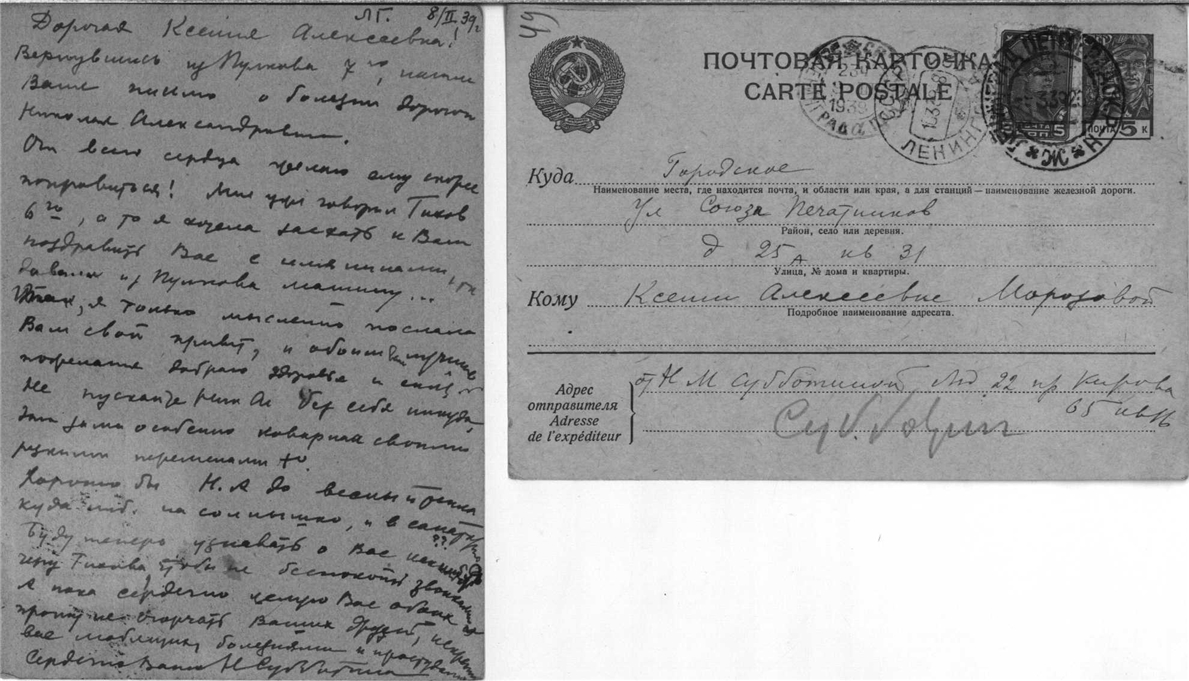 ЛГ. 8/II 39г
Дорогая Ксения Алексеевна!
Вернувшись из Пулкова 7го, нашла
Ваше письмо о болезни дорогого
Николая Александровича.
От всего сердца желаю ему скорее
поправиться! Мне уже говорил Тихов
6го, а то я хотела заехать к Вам
поздравить Вас с именинами,
давали из Пулкова машину...
Итак, я только мысленно послала
Вам свой привет, и обоим Вам лучшие
пожелания доброго здоровья и сил
Не пускайте Ник Ал без себя никуда,
эта зима особенно коварная своими
резкими переменами to.
Хорошо бы Н.А до весны
куда ниб. на солнышко, и в санаторию
??
Буду теперь узнавать о Вас
Тихова чтобы не беспокоить звонками
А пока сердечно целую Вас обоих и
прошу не огорчать Ваших друзей, искренно
Вас любящих, болезнями и простудами
Сердечно Ваша Н Субботина
49
ПОЧТОВАЯ КАРТОЧКА
CARTE POSTALE
1939
ЛЕНИНГРАД
ПОЧТА 5 К
Куда Городское
Наименование места, где находится почта, и области или края, а для станций—наименование железной дороги.
Ул Союза Печатников
Район, село или деревня.
д 25А кв 31
Улица, № дома и квартиры.
Кому Ксении Алексеевне Морозовой
Подробное наименование адресата.
Адрес
отправителя
Adresse
de l'expéditeur
от Н М Субботиной Лд 22 пр Кирова
65 кв 16